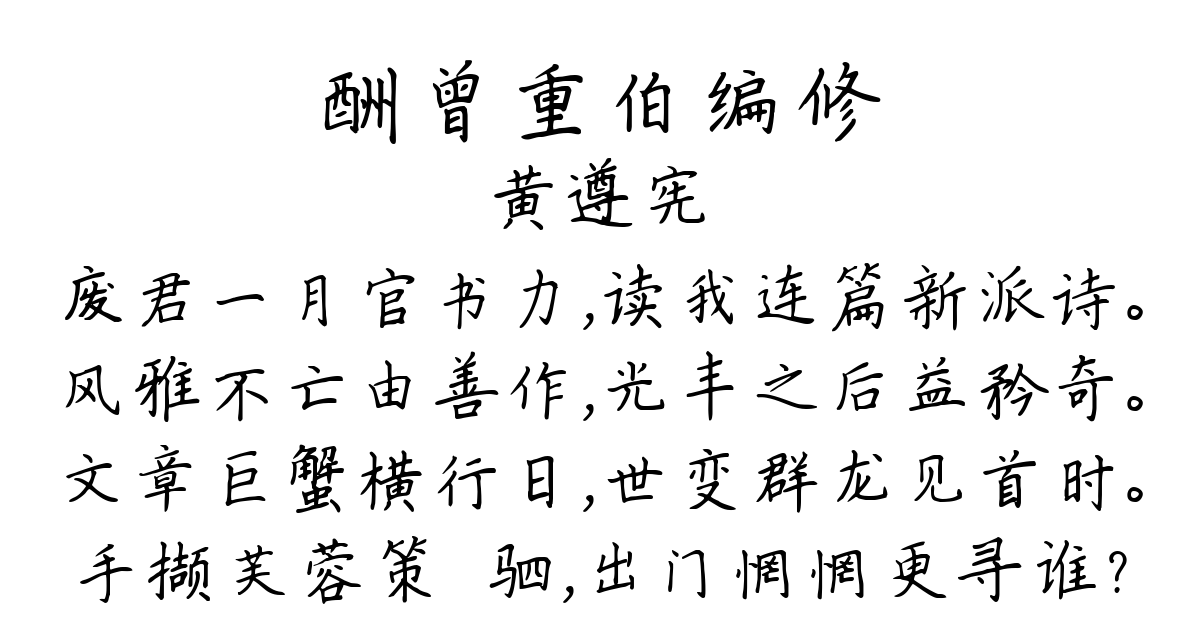 酬曾重伯编修
黄遵宪
废君一月官书力,读我连篇新派诗。
风雅不亡由善作,光丰之后益矜奇。
文章巨蟹横行日,世变群龙见首时。
手撷芙蓉策 驷,出门惘惘更寻谁?